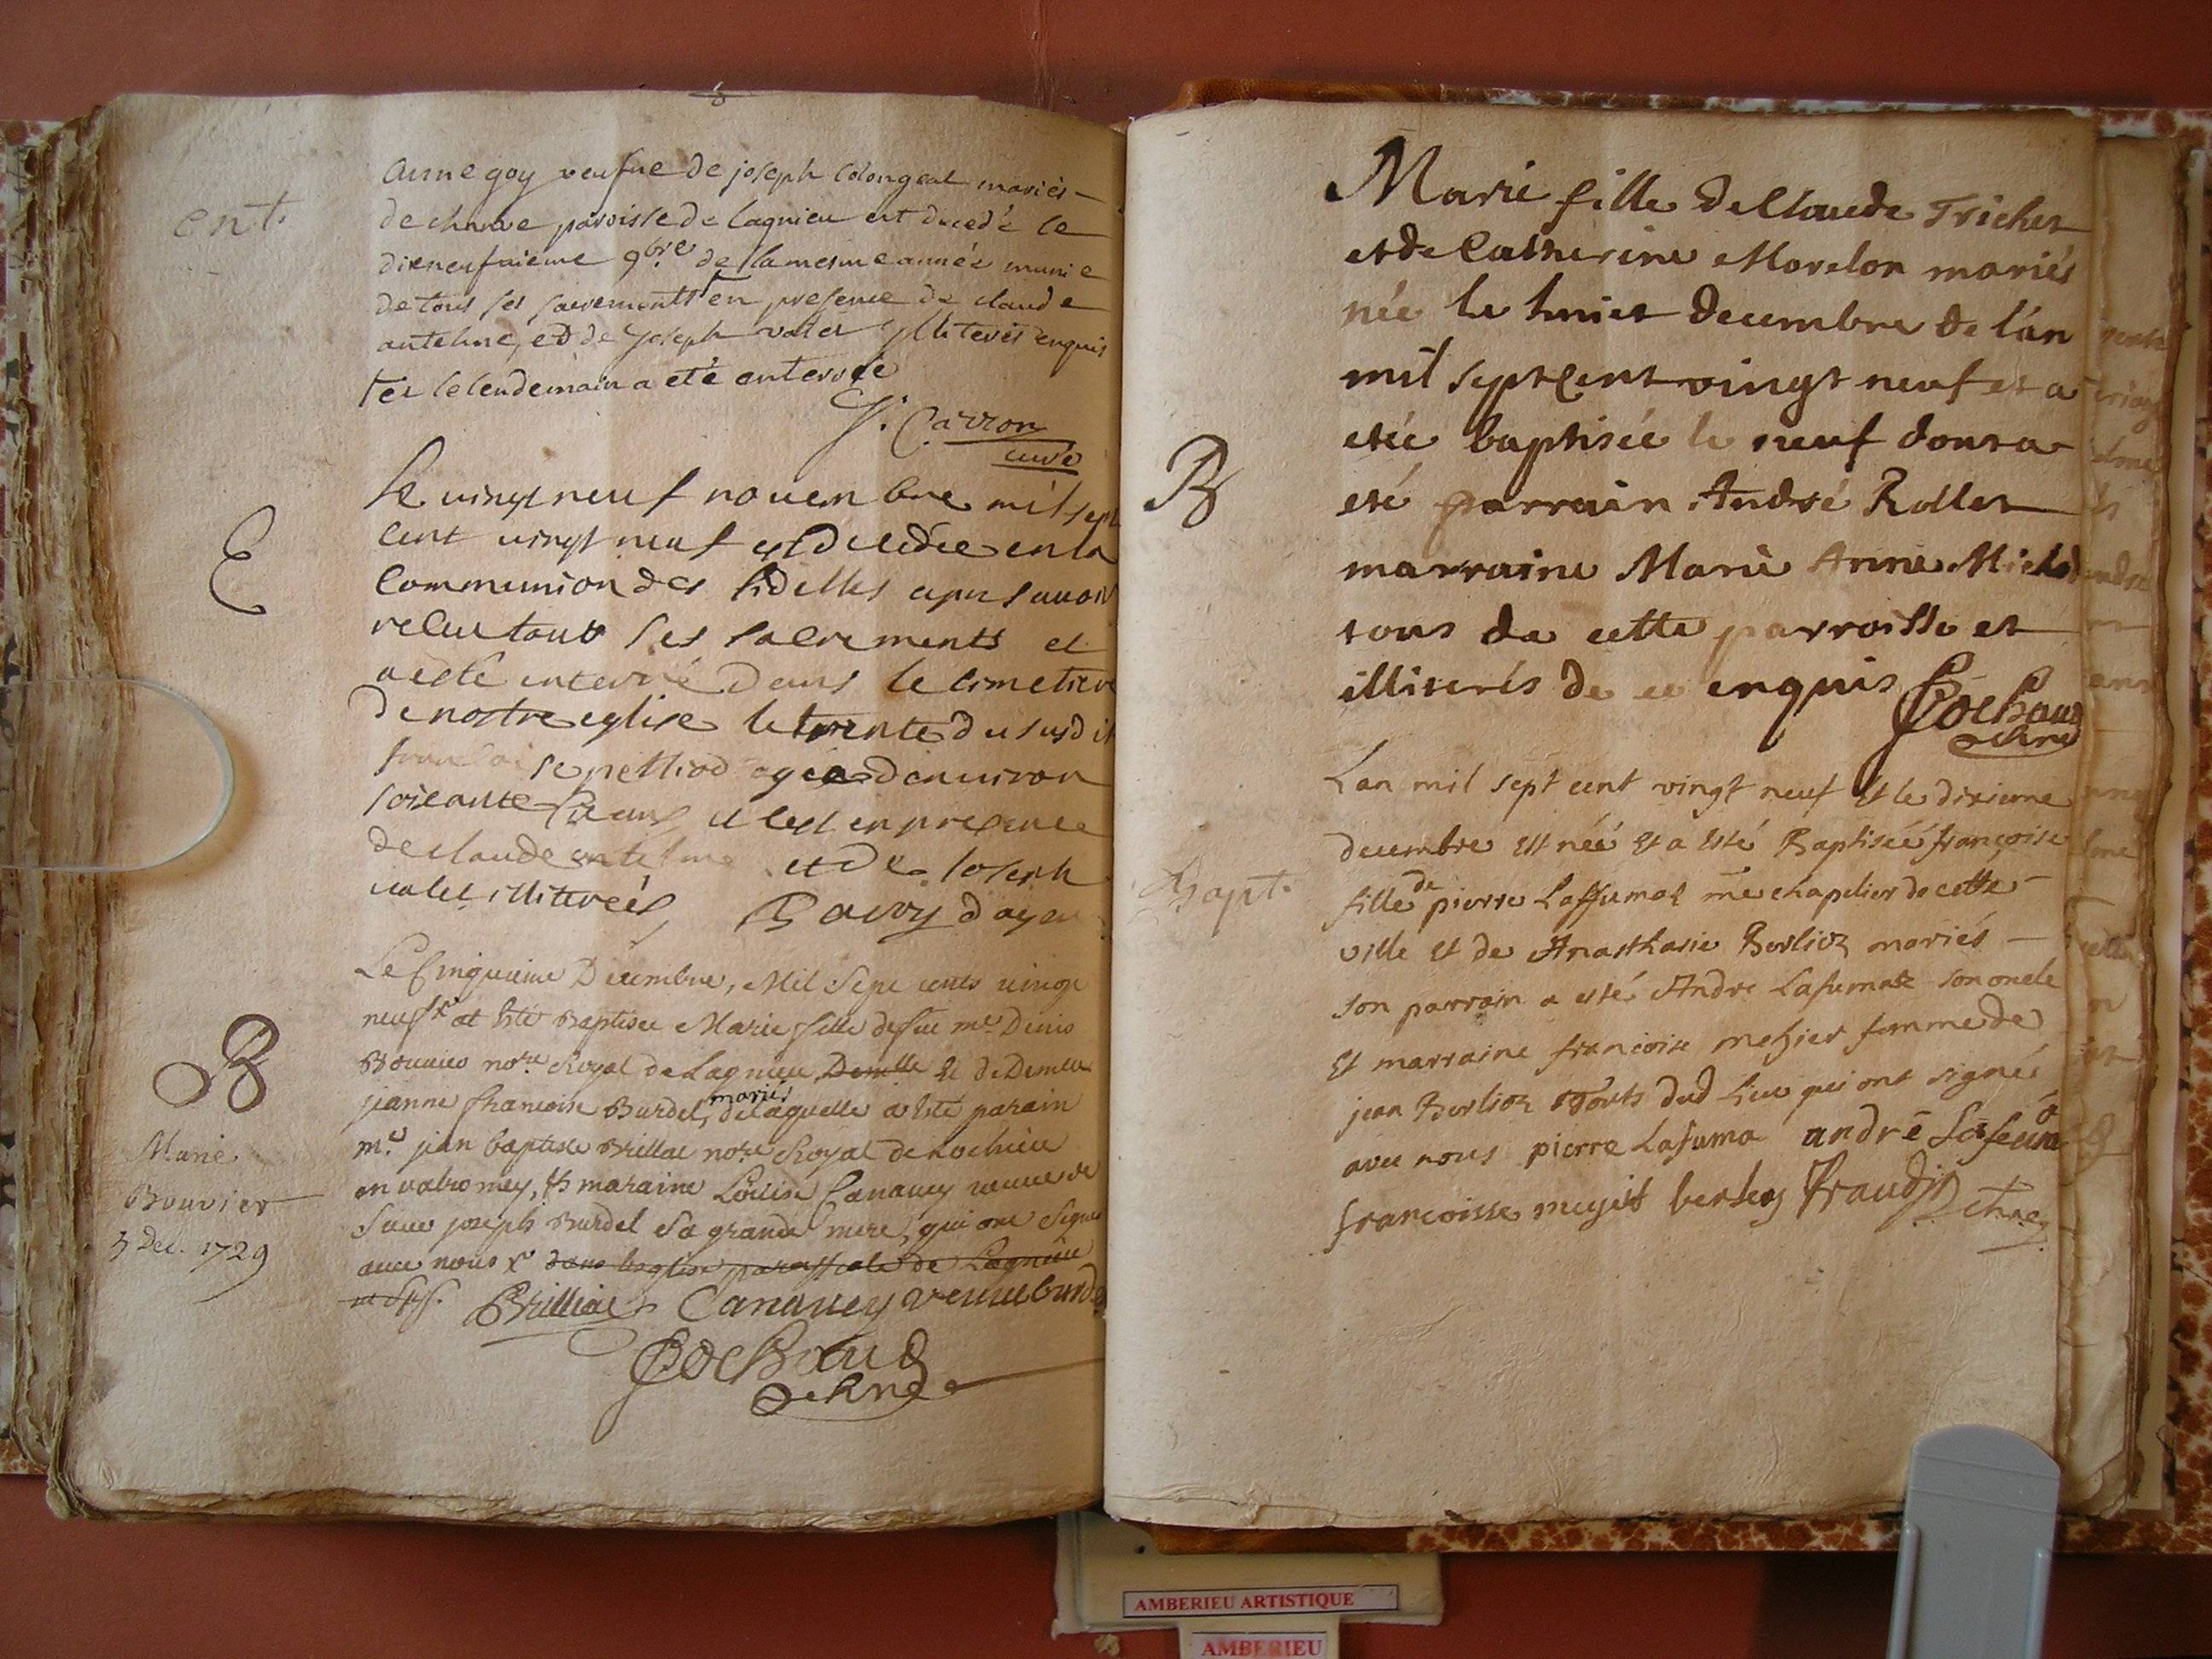 ent.
anne goy veufue de joseph Colongeat mariés
de charve paroisse de lagnieu est decedé le
dixneufuieme 9bre de la mesme année munie
de tous ses sacrements en presence de claude
antelme, et de Joseph valet illiterés enquis
et le lendemain a eté enterrée
J. Carron
curé
E
Le vingt neuf nouembre mil sept
cent vingt neuf est decedée en la
Communion des fidelles apres auoir
receu tout ses sacrements et
a esté enterré dans le cimetiere
de nostre eglise le trente du susdit
francoise pelliod agée denuiron
soixante ans et cest en presence
de claude antelme et de Joseph
valet illiterés
B
Marie
Bouvier
5 Dec. 1729
Le Cinquieme Decembre, Mil Sept cents vingt
neuf at été Baptisée Marie fille de feu me Denis
Bouuier nore Royal de Lagnieu Demlle et de Demlle
jeanne francoise Burdel, mariés de laquelle a été parain
me jean baptiste Brillat nore Royal de Lochieu
en valromey, & maraine Louise Canauey veuue de
Sieur joseph Burdel Sa grande mere, qui ont Signé
auec nous dans leglise parossiale de Lagnieu
Brilliat Canauey veuue burdel
Cochaud
Marie fille de Claude Trichet
et de Catherine Morelon mariés
née le huict decembre de l'an
mil septcent vingt neuf et a
B
etée baptisée le neuf dont a
eté parrain André Rollet
marraine Marie Anne Michod
tous de cette parroisse et
illiterés de ce enquis
Cochaud
L'an mil sept cent vingt neuf et le dixieme
decembre est née et a esté Baptisée françoise
Bapt.
fille de pierre Laffumat me chapelier de cette
ville et de Anasthasie Berlioz mariés
son parrain a esté Andre Lafumat son oncle
Et marraine françoise mezier femme de
jean Berlioz touts dud Lieu qui ont signé
avec nous pierre Lafuma andré Lafuma
francoisse
AMBERIEU ARTISTIQUE
AMBERIEU